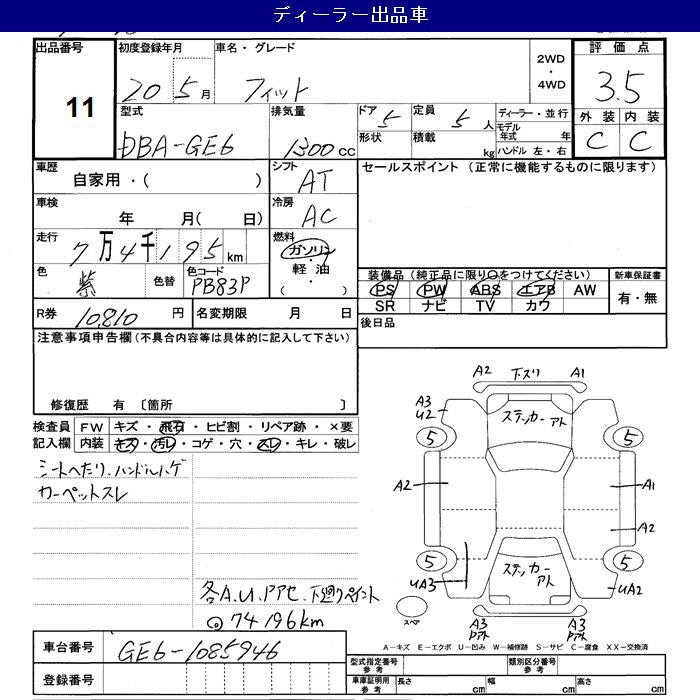 ディーラー出品車
出品番号 初度登録年月 車名・グレード 2WD ・ 4WD 評価点
11 20 5月 フィット 3.5
型式 排気量 ドア 5 定員 5人 ディーラー・並行 外装 内装
DBA-GE6 1300cc 形状 積載 kg モデル年式 年 C C
ハンドル 左・右
車歴 シフト セールスポイント (正常に機能するものに限ります)
自家用・( ) AT
車検 冷房
年 月( 日) AC
走行 燃料
7万4千195km ガソリン
・
軽油
( )
色 紫 色替 色コード PB83P
装備品(純正品に限り○をつけてください) 新車保証書
PS PW ABS エアB AW 有・無
SR ナビ TV カワ
R券 10,810円 名変期限 月 日 後日品
注意事項申告欄(不具合内容等は具体的に記入して下さい)
修復歴 有 〔箇所 〕
検査員 FW キズ・飛石・ヒビ割・リペア跡・×要
記入欄 内装 キズ・汚レ・コゲ・穴・スレ・キレ・破レ
シートヘたり、ハンドルハゲ
カーペットスレ
各A.U.Pアセ.下廻りペイント
◎74196km
A2 下スリ A1
A3
U2
ステッカーアト
5 5
A2 A1
A2
5 5
UA3 ステッカーアト UA2
スペア
A3 Pアト A3 Pアト
A-キズ E-エクボ U-凹み W-補修跡 S-サビ C-腐食 XX-交換済
車台番号 GE6-1085946
登録番号
型式指定番号 参考 類別区分番号 参考
車庫証明用 参考 長さ cm 幅 cm 高さ cm